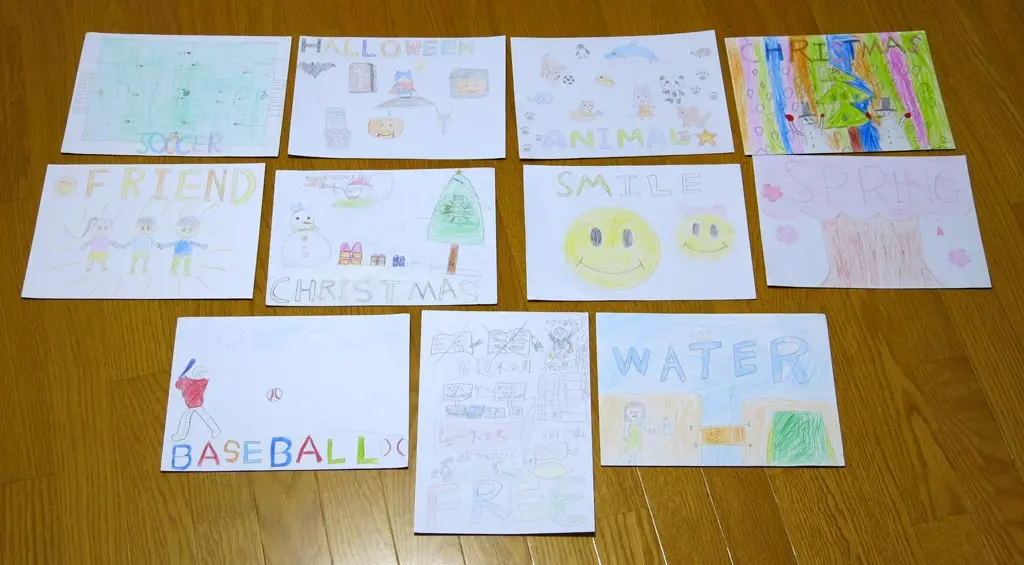 SOCCER
HALLOWEEN
ANIMAL
CHRISTMAS
FRIEND
CHRISTMAS
SMILE
SPRING
BASEBALL
FREE
WATER